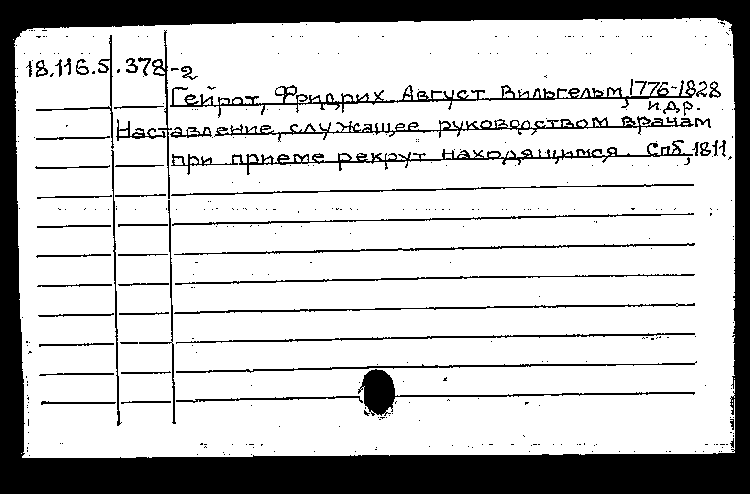 18.116.5.378-2
Гейрот, Фридрих Август Вильгельм, 1776-1828
и.др.
Наставление, служащее руководством врачам
при приеме рекрут находящимся. Спб, 1811.